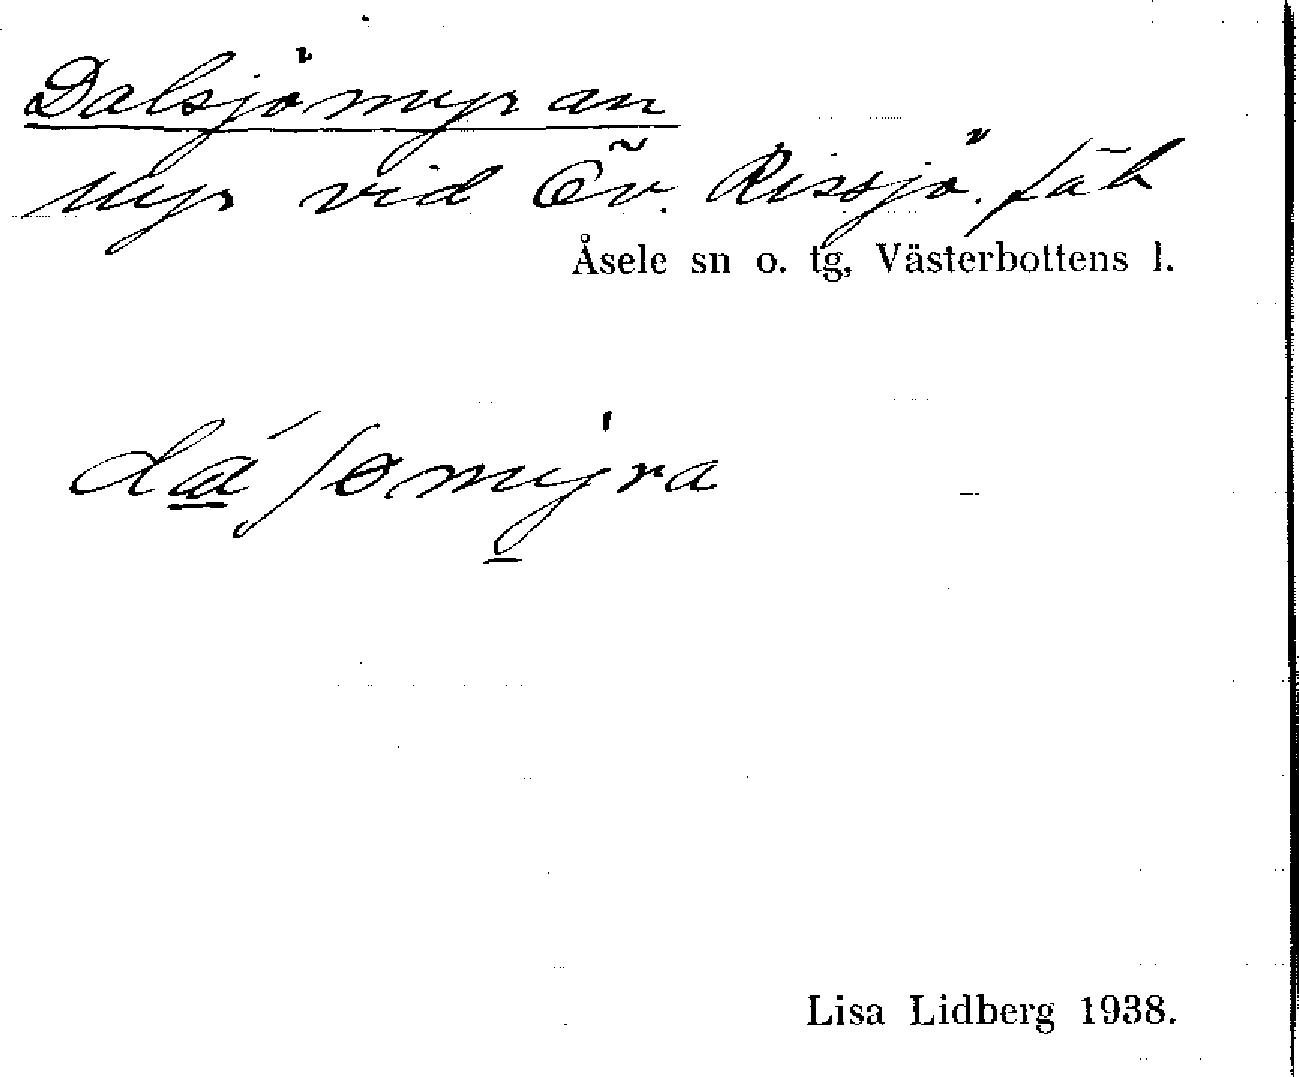 Dalsjömyran
Myr vid Öv. Rissjö. fäb
Åsele sn o. tg, Västerbottens l.
dá̱ʃømy̱̍ra
Lisa Lidberg 1938.